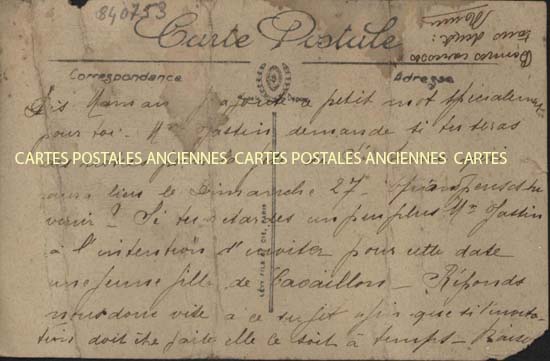 840753
Carte Postale
Correspondance
Adresse
Bonnes caresses
Dis Maman j'ajoute ce petit mot spécialement
pour toi. Mme Jastin demande si tu seras
CARTES POSTALES ANCIENNES CARTES POSTALES ANCIENNES CARTES
aura lieu le Dimanche 27. Quand penses-tu
venir? Si tu retardes un peu plus Mme Jastin
à l'intention d'inviter pour cette date
une jeune fille de Cavaillon - Réponds
nous donc vite à ce sujet afin que si l'invita-
tion doit être faite elle le soit à temps - Baisers
LÉVY FILS ET CIE, PARIS